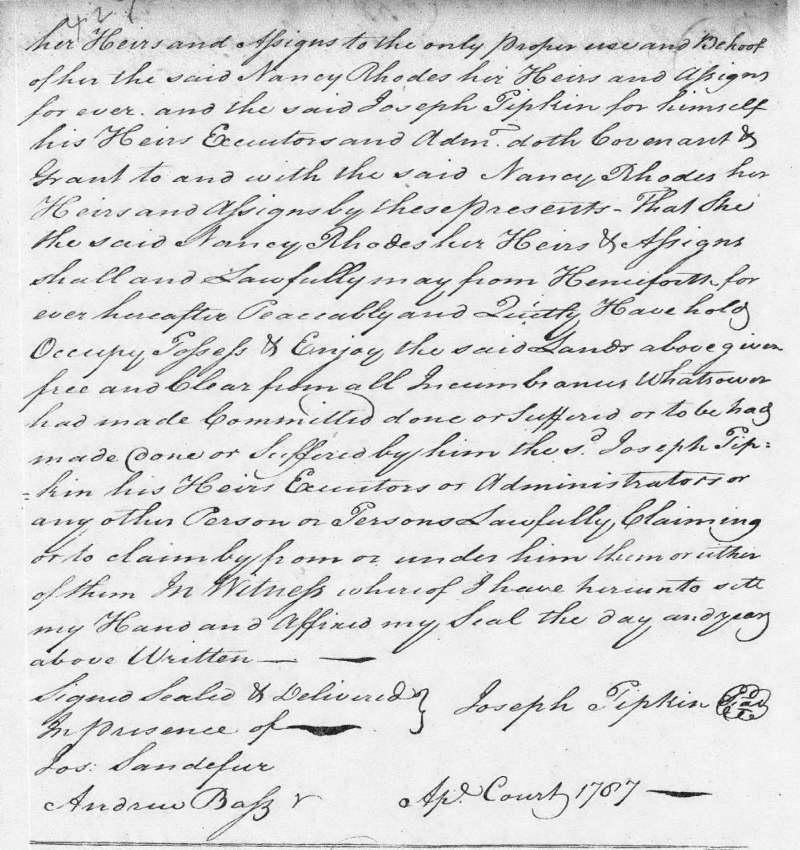 427
her Heirs and Assigns to the only proper use and Behoof
of her the said Nancy Rhodes her Heirs and Assigns
for ever. and the said Joseph Pipkin for himself
his Heirs Executors and Admrs. doth Covenant &
Grant to and with the said Nancy Rhodes her
Heirs and Assigns by these presents - That She
the said Nancy Rhodes her Heirs & Assigns
shall and Lawfully may from Henceforth for
ever hereafter Peaceably and Quietly Have hold
Occupy Possess & Enjoy the said Lands above given
free and Clear from all Incumbrances Whatsoever
had made Committed done or Suffered or to be had
made done or Suffered by him the sd. Joseph Pip=
=kin his Heirs Executors or Administrators or
any other Person or Persons Lawfully Claiming
or to claim by from or under him them or either
of them In Witness whereof I have hereunto sett
my Hand and Affixed my Seal the day and year
above Written
Signed Sealed & Delivered } Joseph Pipkin Seal
In presence of
Jos: Sandefur
Andrew Bass Apl. Court 1787